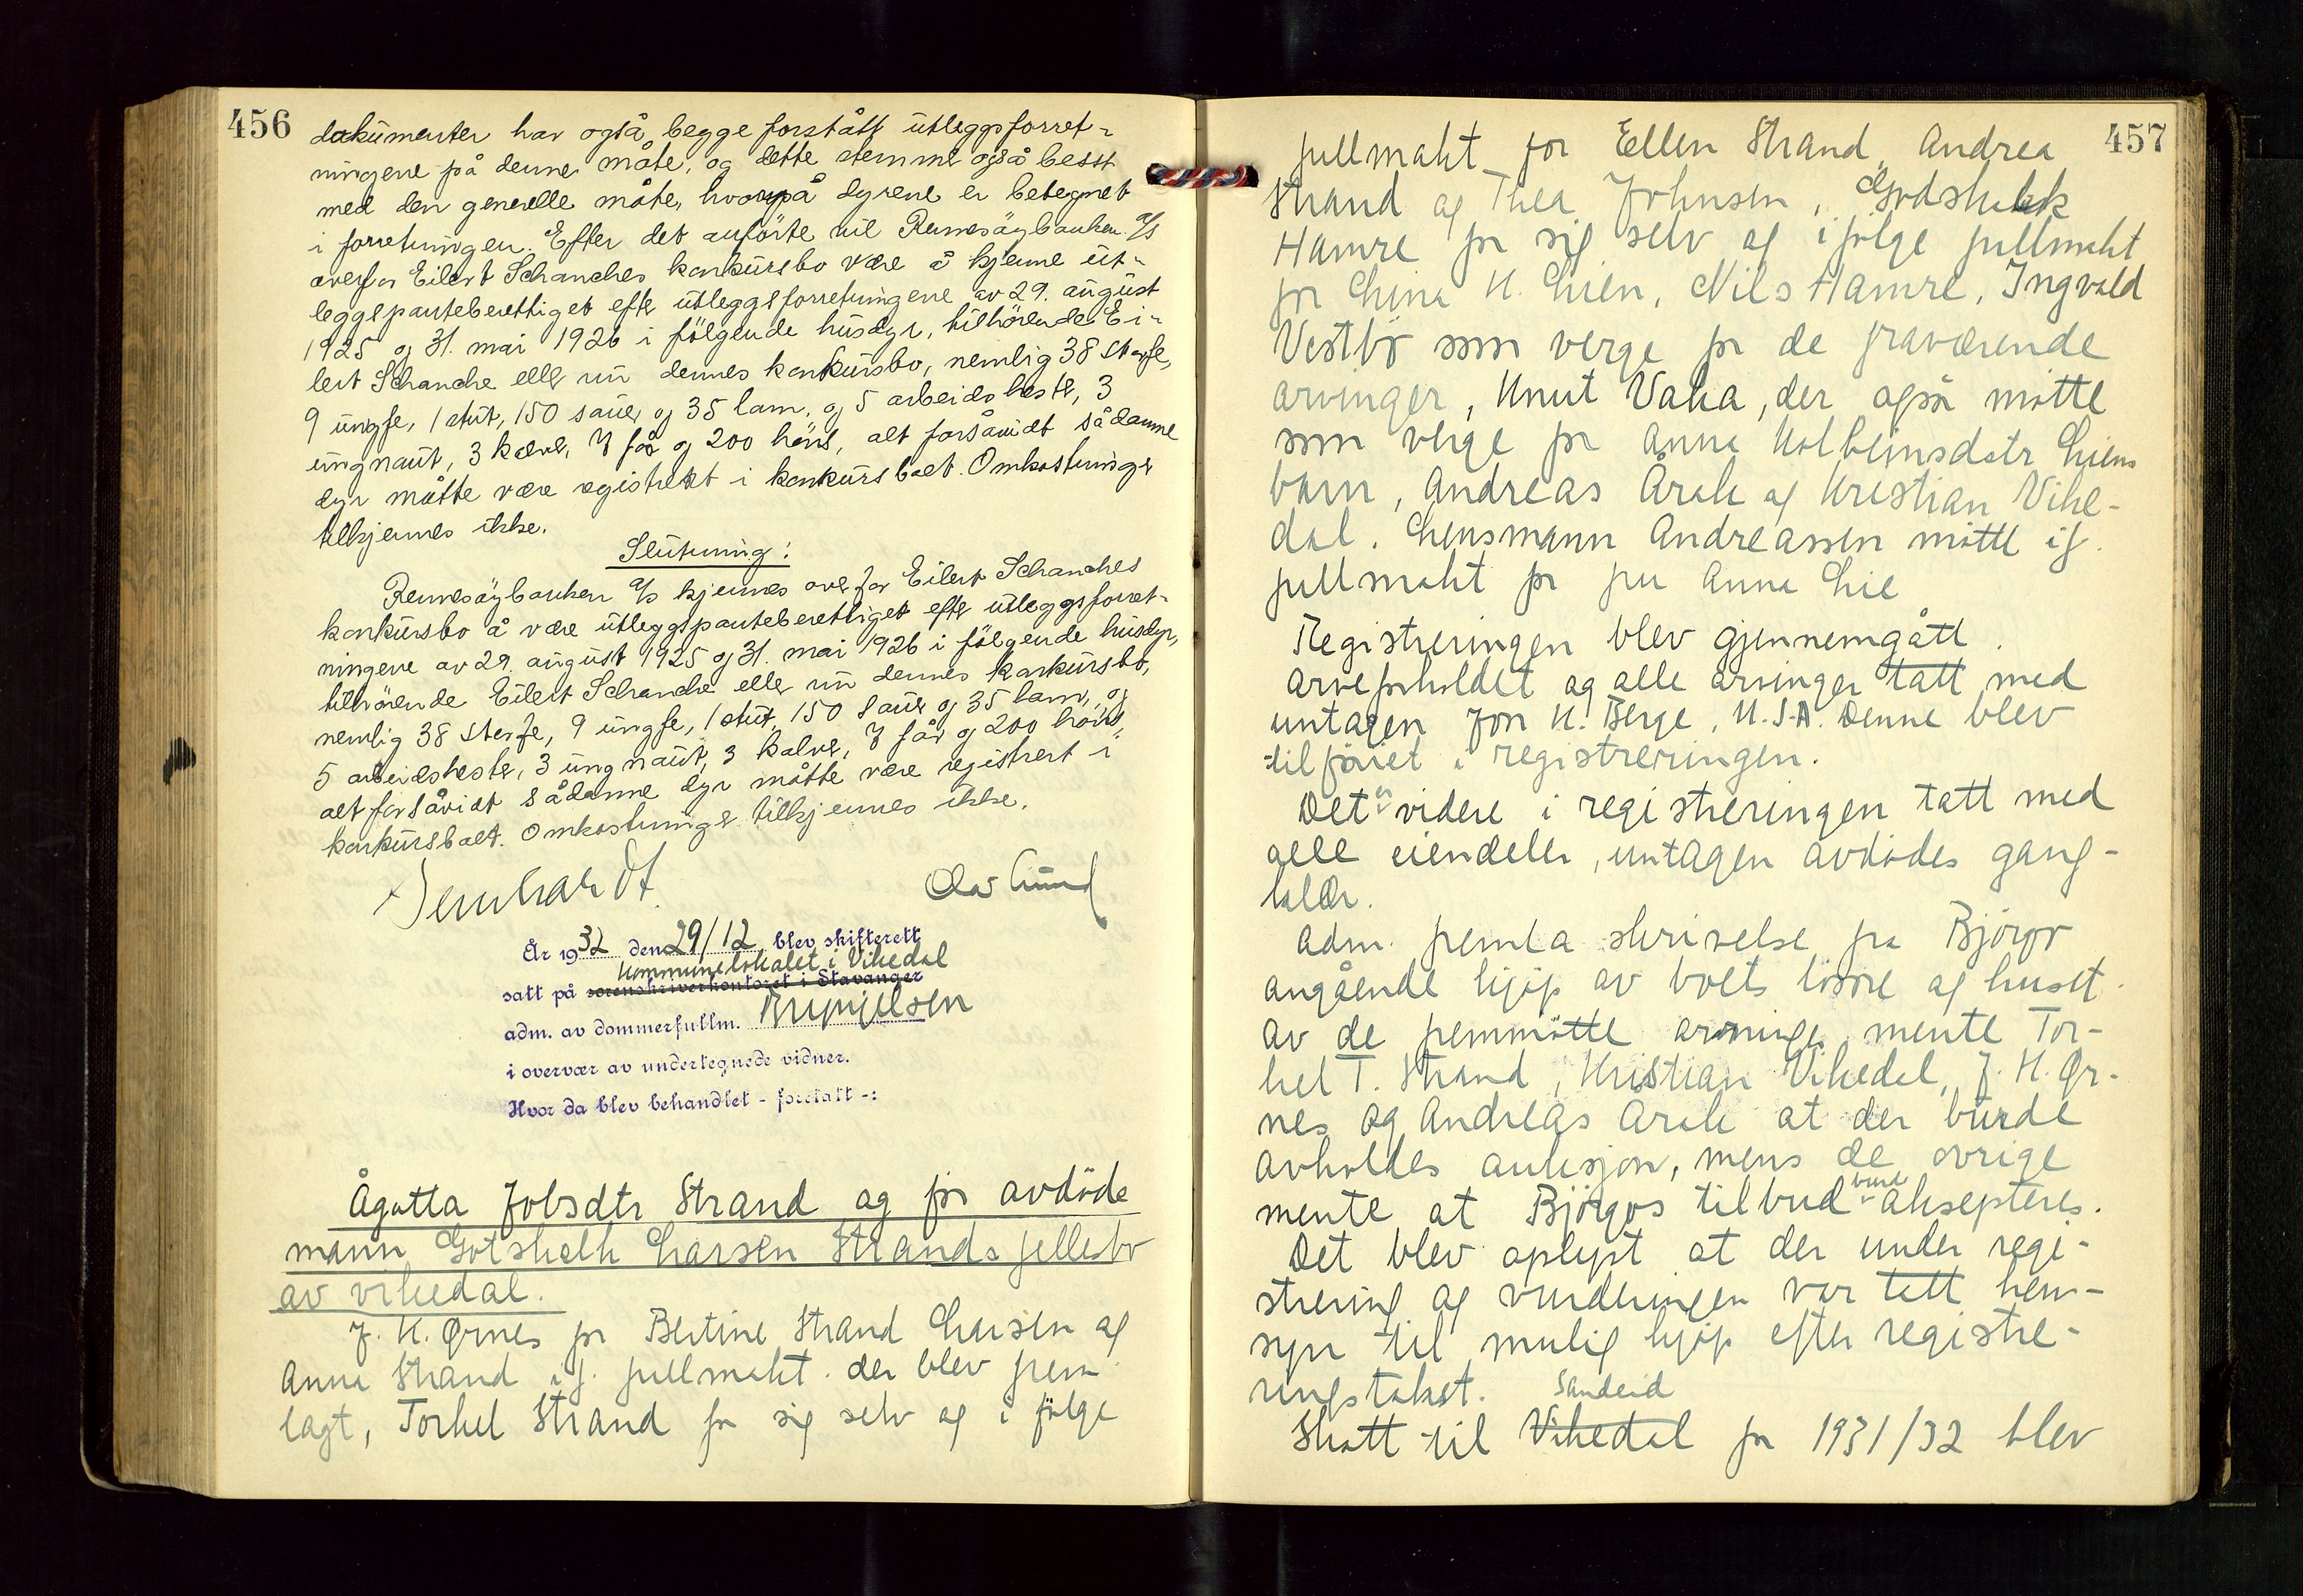 456
dokumenter har også begge forstått utleggsforret-
ningene på denne måte, og dette stemmer også besst
med den generelle måte, hvorpå dyrene er betegnet
i forretningen. Efter det anförte vil Rennesöybanken A/s
overfor Eilert Schanches konkursbo være å kjenne ut-
leggspanteberettiget efter utleggsforretningene av 29. august
1925 og 31. mai 1926 i fölgende husdyr, tilhörende Ei-
lert Schanche eller nu dennes konkursbo, nemlig 38 storfe,
9 ungfe, 1 stut, 150 sauer og 35 lam, og 5 arbeidshester, 3
ungnaut, 3 kalver, 7 får og 200 höns, alt forsåvidt sådanne
dyr måtte være registrert i konkursboet. Omkostninger
tilkjennes ikke.
Slutning:
Rennesöybanken A/s kjennes overfor Eilert Schanches
konkursbo å være utleggspanteberettiget efter utleggsforret-
ningene av 29. august 1925 og 31. mai 1926 i fölgende husdyr,
tilhörende Eilert Schanche eller nu dennes konkursbo,
nemlig 38 storfe, 9 ungfe, 1 stut, 150 sauer og 35 lam, og
5 arbeidshester, 3 ungnaut, 3 kalver, 7 får og 200 höns,
alt forsåvidt sådanne dyr måtte være registrert i
konkursboet. Omkostninger tilkjennes ikke.
Olav Lund
År 1932 den 29/12 blev skifterett
kommunelokalet i Vikedal
satt på sorenskriverkontoret i Stavanger
adm. av dommerfullm. Brynjelsen
i overvær av undertegnede vidner.
Hvor da blev behandlet - foretatt -:
Ågatta Jobsdtr Strand og for avdöde
mann Gotskalk Larsen Strands fellesbo
av Vikedal.
J. K. Ørnes for Bertine Strand Larsen og
Anna Strand if. fullmakt der blev frem
lagt, Torkel Strand for sig selv og i fölge
457
fullmakt for Ellen Strand, Andrea
Strand og Thea Johnsen, Godskalk
Hamre for sig selv og ifölge fullmakt
for Lina K. Lien, Nils Hamre, Ingvald
Vestbö som verge for de fraværende
arvinger, Knut Vaka, der også mötte
som verge for Anna Kolbeinsdatr Liens
barn, Andreas Årak og Kristian Vike-
dal. Lensmann Andreassen mötte if.
fullmakt for fru Anna Lie
Registreringen blev gjennemgått.
Arveforholdet og alle arvinger tatt med
untagen Jon K. Berge, U.S.A. Denne blev
tilföiet i registreringen.
Det er videre i registreringen tatt med
alle eiendeler, untagen avdödes gang-
klær.
Adm. fremla skrivelse fra Björgo
angående kjöp av boets lösöre og huset.
Av de fremmötte arvinger mente Tor-
kel T. Strand, Kristian Vikedal, J. K. Ør-
nes og Andreas Årak at der burde
avholdes auksjon, mens de övrige
mente at Björgos tilbud burde aksepteres.
Det blev oplyst at der under regi-
strering og vurderingen var tatt hen-
syn til mulig kjöp efter registre-
ringstakst.
Sandeid
Skatt til Vikedal for 1931/32 blev